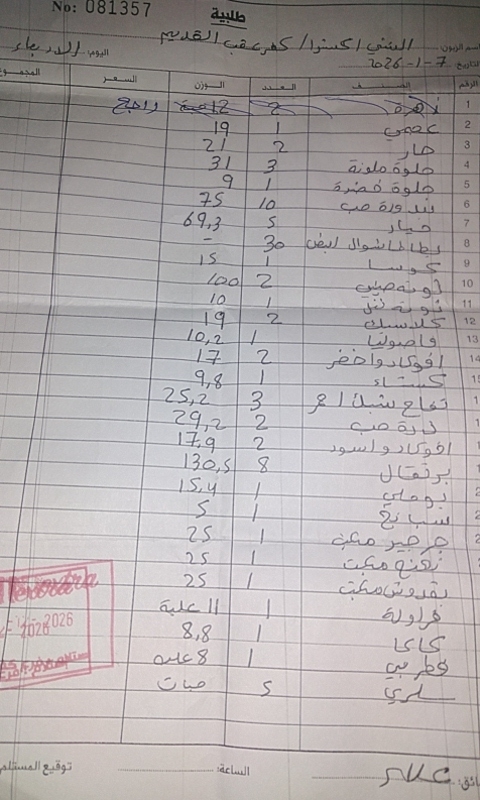 No: 081357
طلبية
اسم الزبون: السني اكسترا / كفر عقب القديم
اليوم: الاربعاء
التاريخ: 7-1-2026
الرقم الصنف العدد الوزن السعر المجموع
1 زهرة 2 12 راجع
2 عصمي 1 19
3 حار 2 21
4 حلوة ملونة 3 31
5 حلوة خضرة 1 9
6 بندورة حب 10 75
7 خيار 5 69,3
8 بطاطا شوال ابيض 30 -
9 كوسا 1 15
10 2 100
11 1 10
12 كلاسيك 2 19
13 فاصوليا 1 10,2
14 افوكادو اخضر 2 17
كستناء 1 9,8
تفاح احمر 3 25,2
حب 2 29,2
افوكادو اسود 2 17,9
برتقال 8 130,5
بوملي 1 15,4
سبانخ 1 5
جرجير مكبت 1 25
نعنع مكبت 1 25
بقدونس مكبت 1 25
فراولة 1 11 علبة
كاكا 1 8,8
1 8 علبه
سلري 5 حبات
2026
السائق: علاء
الساعة:
توقيع المستلم